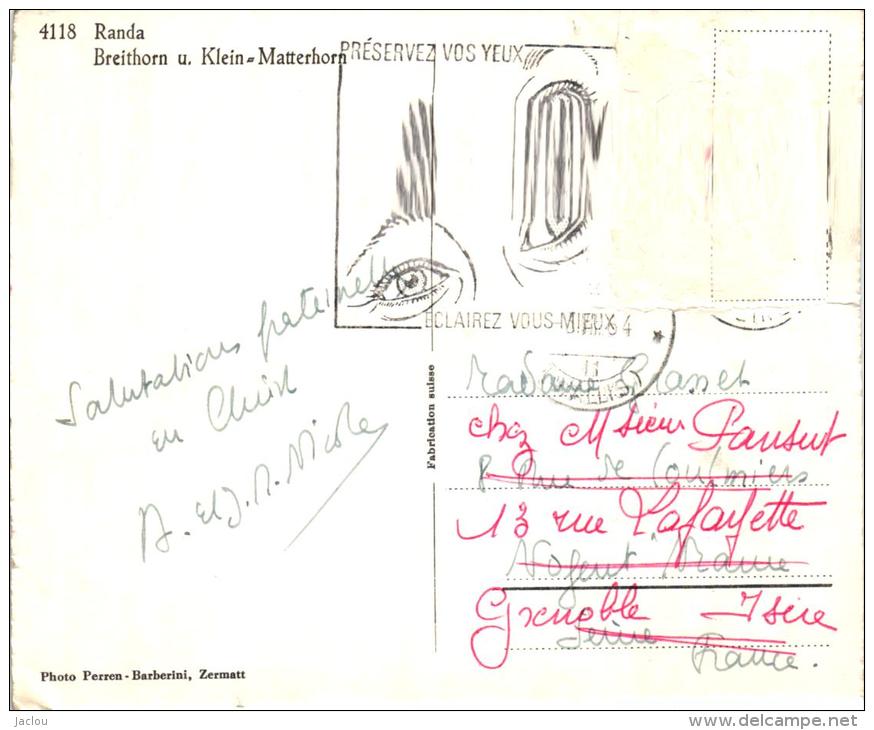 4118 Randa
Breithorn u. Klein-Matterhorn
PRÉSERVEZ VOS YEUX
ECLAIREZ VOUS MIEUX
Salutations fraternelles
en Christ
A. et J. A. Nicole
Fabrication suisse
Madame Grasset
chez Msieur Pansut
8 Rue de Coulmiers
13 rue Lafayette
Nogent Marne
Grenoble Isère
Seine
France.
Photo Perren-Barberini, Zermatt
Jaclou
www.delcampe.net